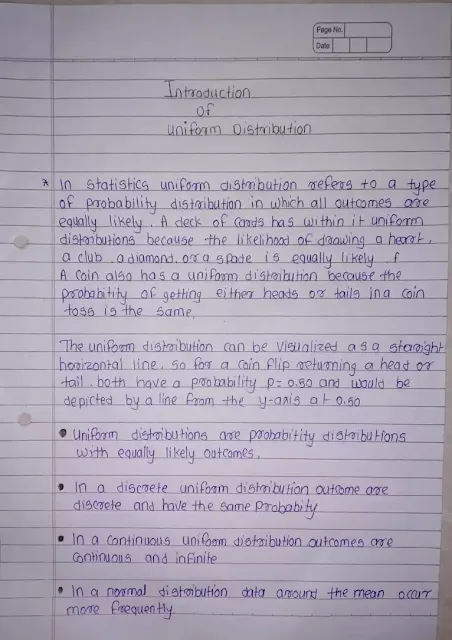 Page No.
Date
Introduction
Of
Uniform Distribution
* In statistics uniform distribution refers to a type
of probability distribution in which all outcomes are
equally likely. A deck of cards has within it uniform
distributions because the likelihood of drawing a heart.
a club. a diamond. or a spade is equally likely. f
A coin also has a uniform distribution because the
probability of getting either heads or tails in a coin
toss is the same.
The uniform distribution can be visualized as a straight
horizontal line, so for a coin flip returning a head or
tail. both have a probability p= 0.50 and would be
depicted by a line from the y-axis at 0.50
• Uniform distributions are probability distributions
with equally likely outcomes.
• In a discrete uniform distribution outcome are
discrete and have the same Probabity
• In a continuous uniform distribution outcomes are
continuous and infinite
• In a normal distribution data around the mean occur
more frequently